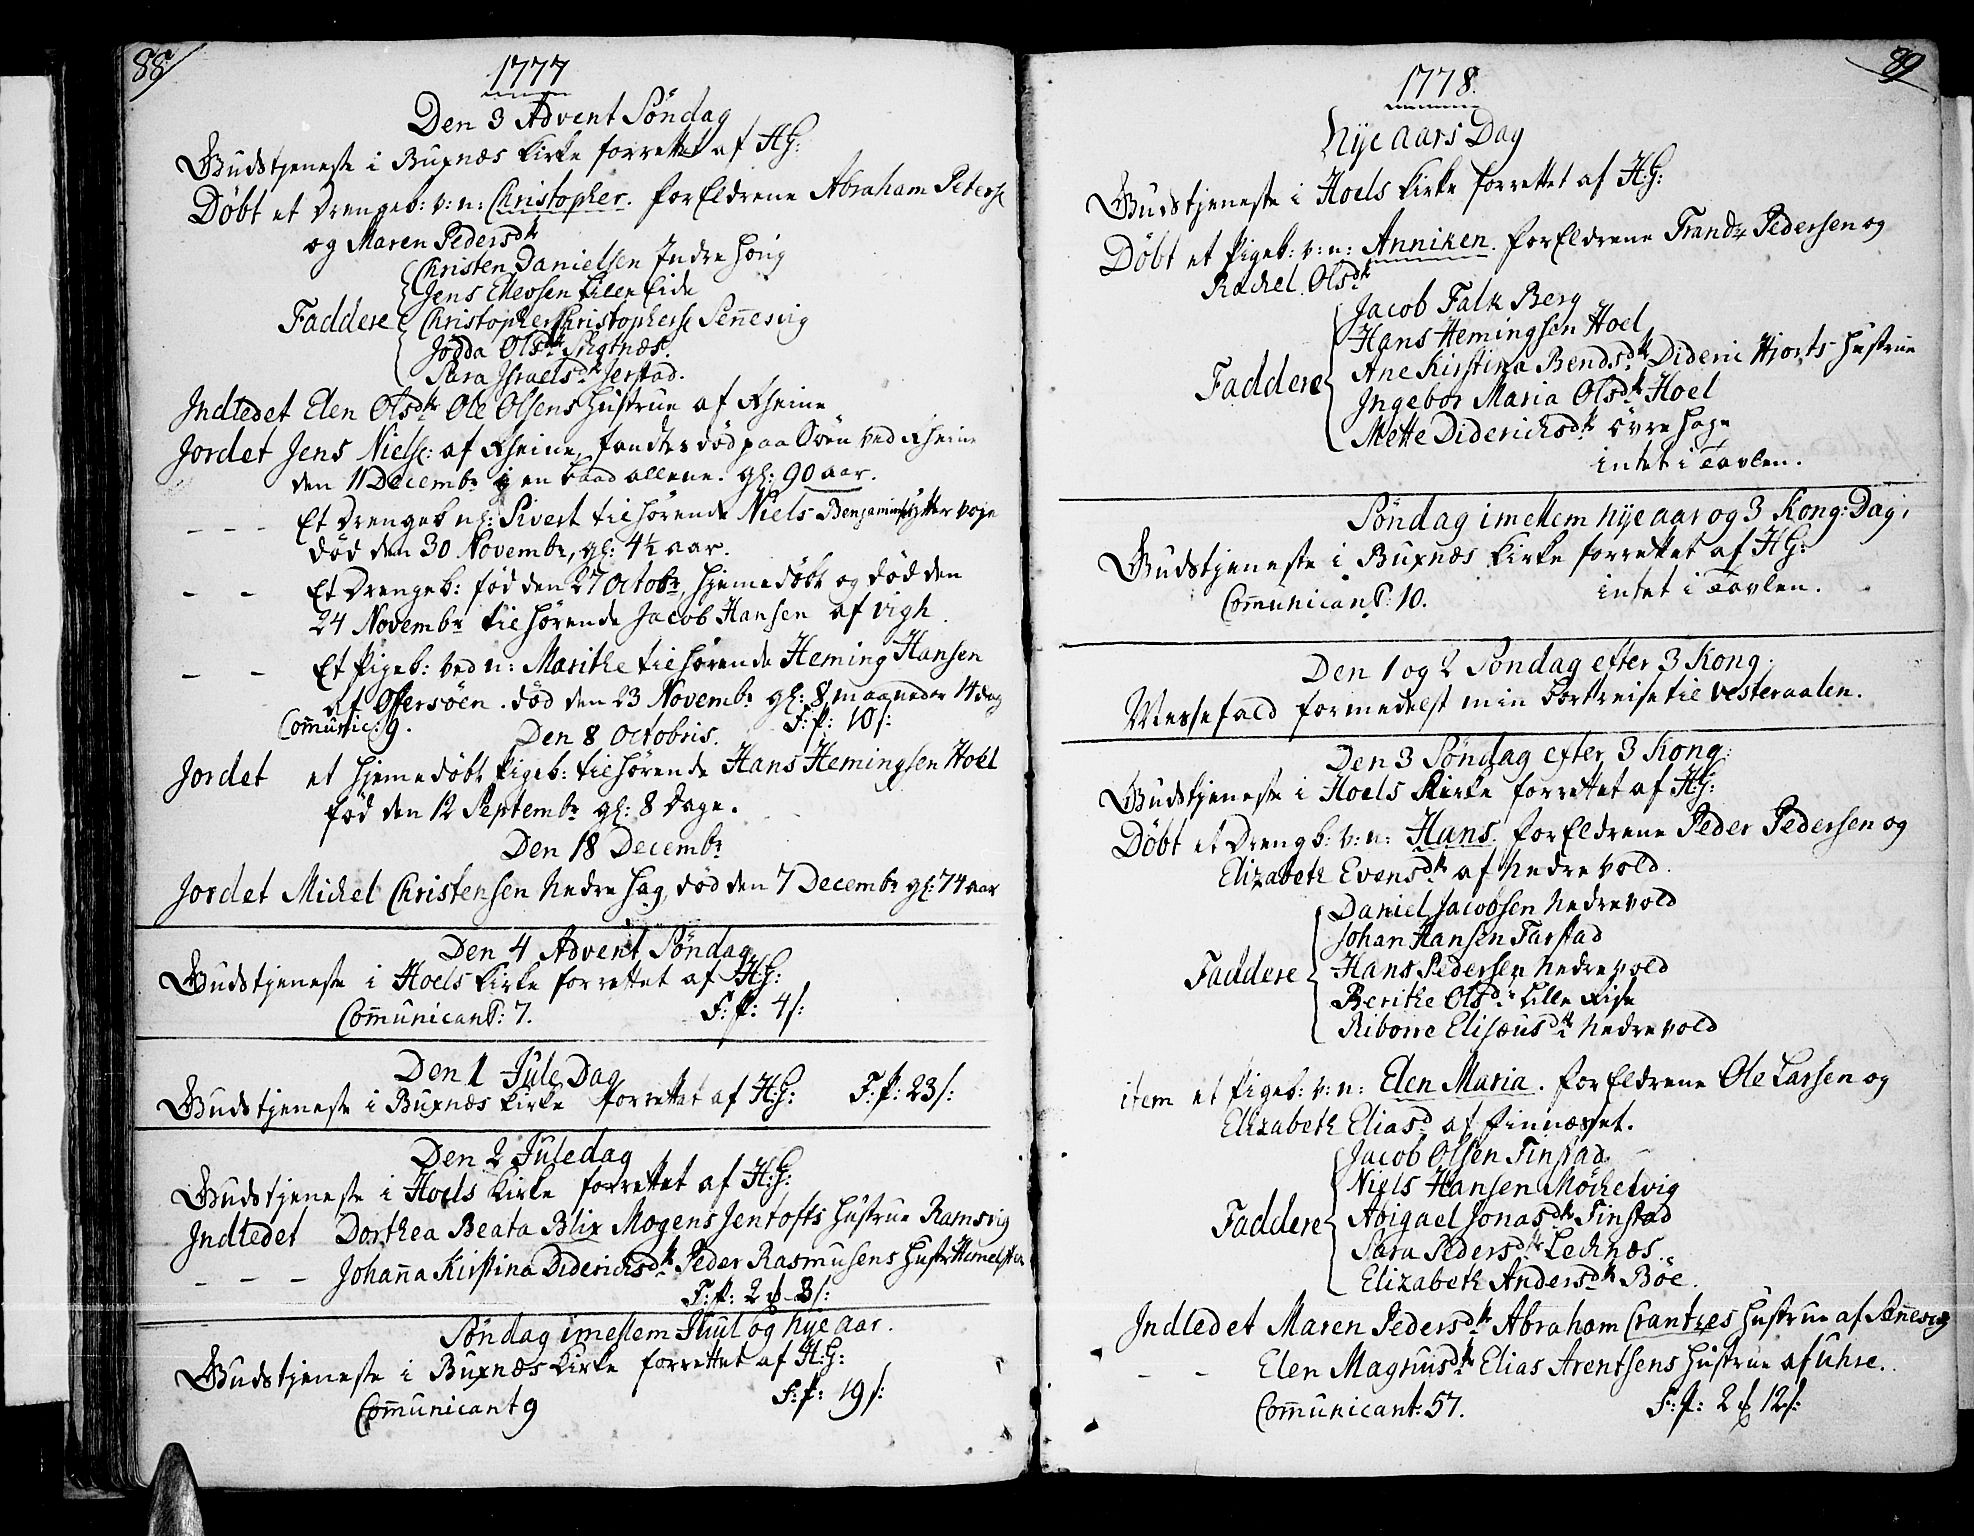 88
1777
Den 3 Advent Söndag
Gudstjeneste i Buxnæs Kirke forrettet af HG:
Döbt et Drengeb: v: n: Christopher. forEldrene Abraham Peters
og Maren Pedersdr
Christen Danielsen Indre Hörig
Jens Ellevsen Lille Eide
Faddere Christopher Christophers Sennesvig
Jödda Olsdr Sigtnæs.
Sara Israelsdr Jerstad.
Indledet Elen Olsdr Ole Olsens Hustrue af Rheine
Jordet Jens Niels: af Rheine, fandtes död paa Söen ved Rheine
den 11 Decembr i en Baad allene. gl: 90 aar.
- - - Et Drengeb nl: Sivert tilhörende Niels Benjamins Yttervoje
död den 30 Novembr, gl: 4½ aar.
- - Et Drengeb: föd den 27 Octobr, hjemedöbt og död den
24 Novembr tilhörende Jacob Hansen af vigh.
- - Et Pigeb: ved n: Marithe tilhörende Heming Hansen
af Offersöen. död den 23 Novembr gl: 8 maaneder 14 dag
Com̄unic: 9. F: P: 10 s:
Den 8 Octobris.
Jordet et hjemedöbt Pigeb: tilhörende Hans Hemingsen Hoel
föd den 12 Septembr gl: 8 Dage.
Den 18 Decembr
Jordet Michel Christensen Nedre Hag, död den 7 Decembr gl: 74 aar
Den 4 Advent Söndag
Gudstjeneste i Hoels Kirke forrettet af H:G:
Com̄unicant: 7. F: P: 4 s:
Den 1 Jule Dag
Gudstjeneste i Buxnæs Kirke forrettet af H:G: F: P: 23 s:
Den 2 Juledag
Gudstjeneste i Hoels Kirke forrettet af H:G:
Indledet Dorthea Beata Blix Mogens Jentofts Hustrue Ramsvig
- - - Johan̄a Kirstina Diderichsdr Peder Rasmusens Hustr Himelst
F: P: 2 ℳ 3 s:
Söndag imellem Juul og Nyeaar.
Gudstjeneste i Buxnæs Kirke forrettet af H:G:
Com̄unicant 9 F: P: 19 s:
89
1778.
Nye aars Dag
Gudstjeneste i Hoels Kirke forrettet af H:G:
Döbt et Pigeb: v: n: Anniken. forEldrene Trandr Pedersen og
Rachel Olsdr
Jacob Falk Berg
Hans Hemingsen Hoel
Faddere Ane Kirstina Bendsdr Dideric Hjorts Hustrue
Ingebor Maria Olsdr Hoel
Mette Diderichsdr övre Hage
intet i Tavlen.
Söndag imellem Nyeaar og 3 Kong: Dag:
Gudstjeneste i Buxnæs Kirke forrettet af HG:
Com̄unicant: 10. intet i Tavlen.
Den 1 og 2 Söndag efter 3 Kong:
Messefald formedelst min Bortreise til Vesteraalen.
Den 3 Söndag efter 3 Kong:
Gudstjeneste i Hoels Kirke forrettet af HG:
Döbt et Drengb: v: n: Hans. forEldrene Peder Pedersen og
Elizabeth Evensdr af Nedrevold.
Daniel Jacobsen Nedrevold
Johan Hansen Farstad
Faddere Hans Pedersen Nedrevold
Berithe Olsd: Lille Rise
Ribone Elisæusdr Nedrevold
item et Pigeb: v: n: Elen Maria. forEldrene Ole Larsen og
Elizabeth Eliasd af Finnæsset.
Jacob Olsen Finstad
Niels Hansen Möchelvig
Faddere Abigael Jonasdr Finstad
Sara Pedersdr Lechnæs.
Elizabeth Andersdr Böe.
Indledet Maren Pedersdr Abraham Crantzes Hustrue af Sen̄esvig
- - Elen Magnusdr Elias Arentsens Hustrue af Uhre.
Com̄unicant: 57. F: P: 2 ℳ 12 s: